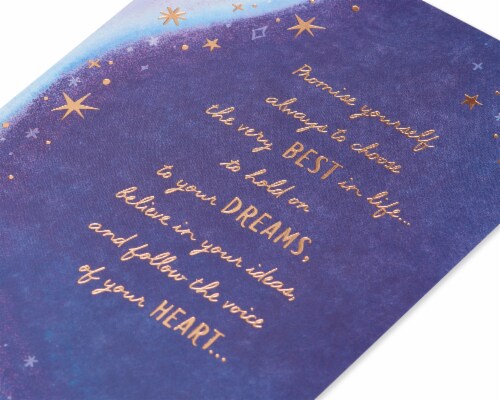 Promise yourself
always to choose
the very BEST in life...
to hold on
to your DREAMS,
believe in your ideas,
and follow the voice
of your HEART...